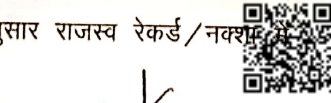 सार राजस्व रेकर्ड/नक्शा में